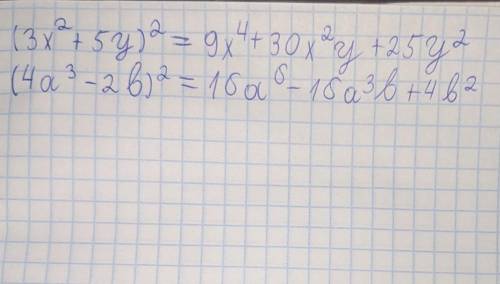 (3x² + 5y)² = 9x⁴ + 30x²y + 25y²
(4a³ - 2b)² = 16a⁶ - 16a³b + 4b²